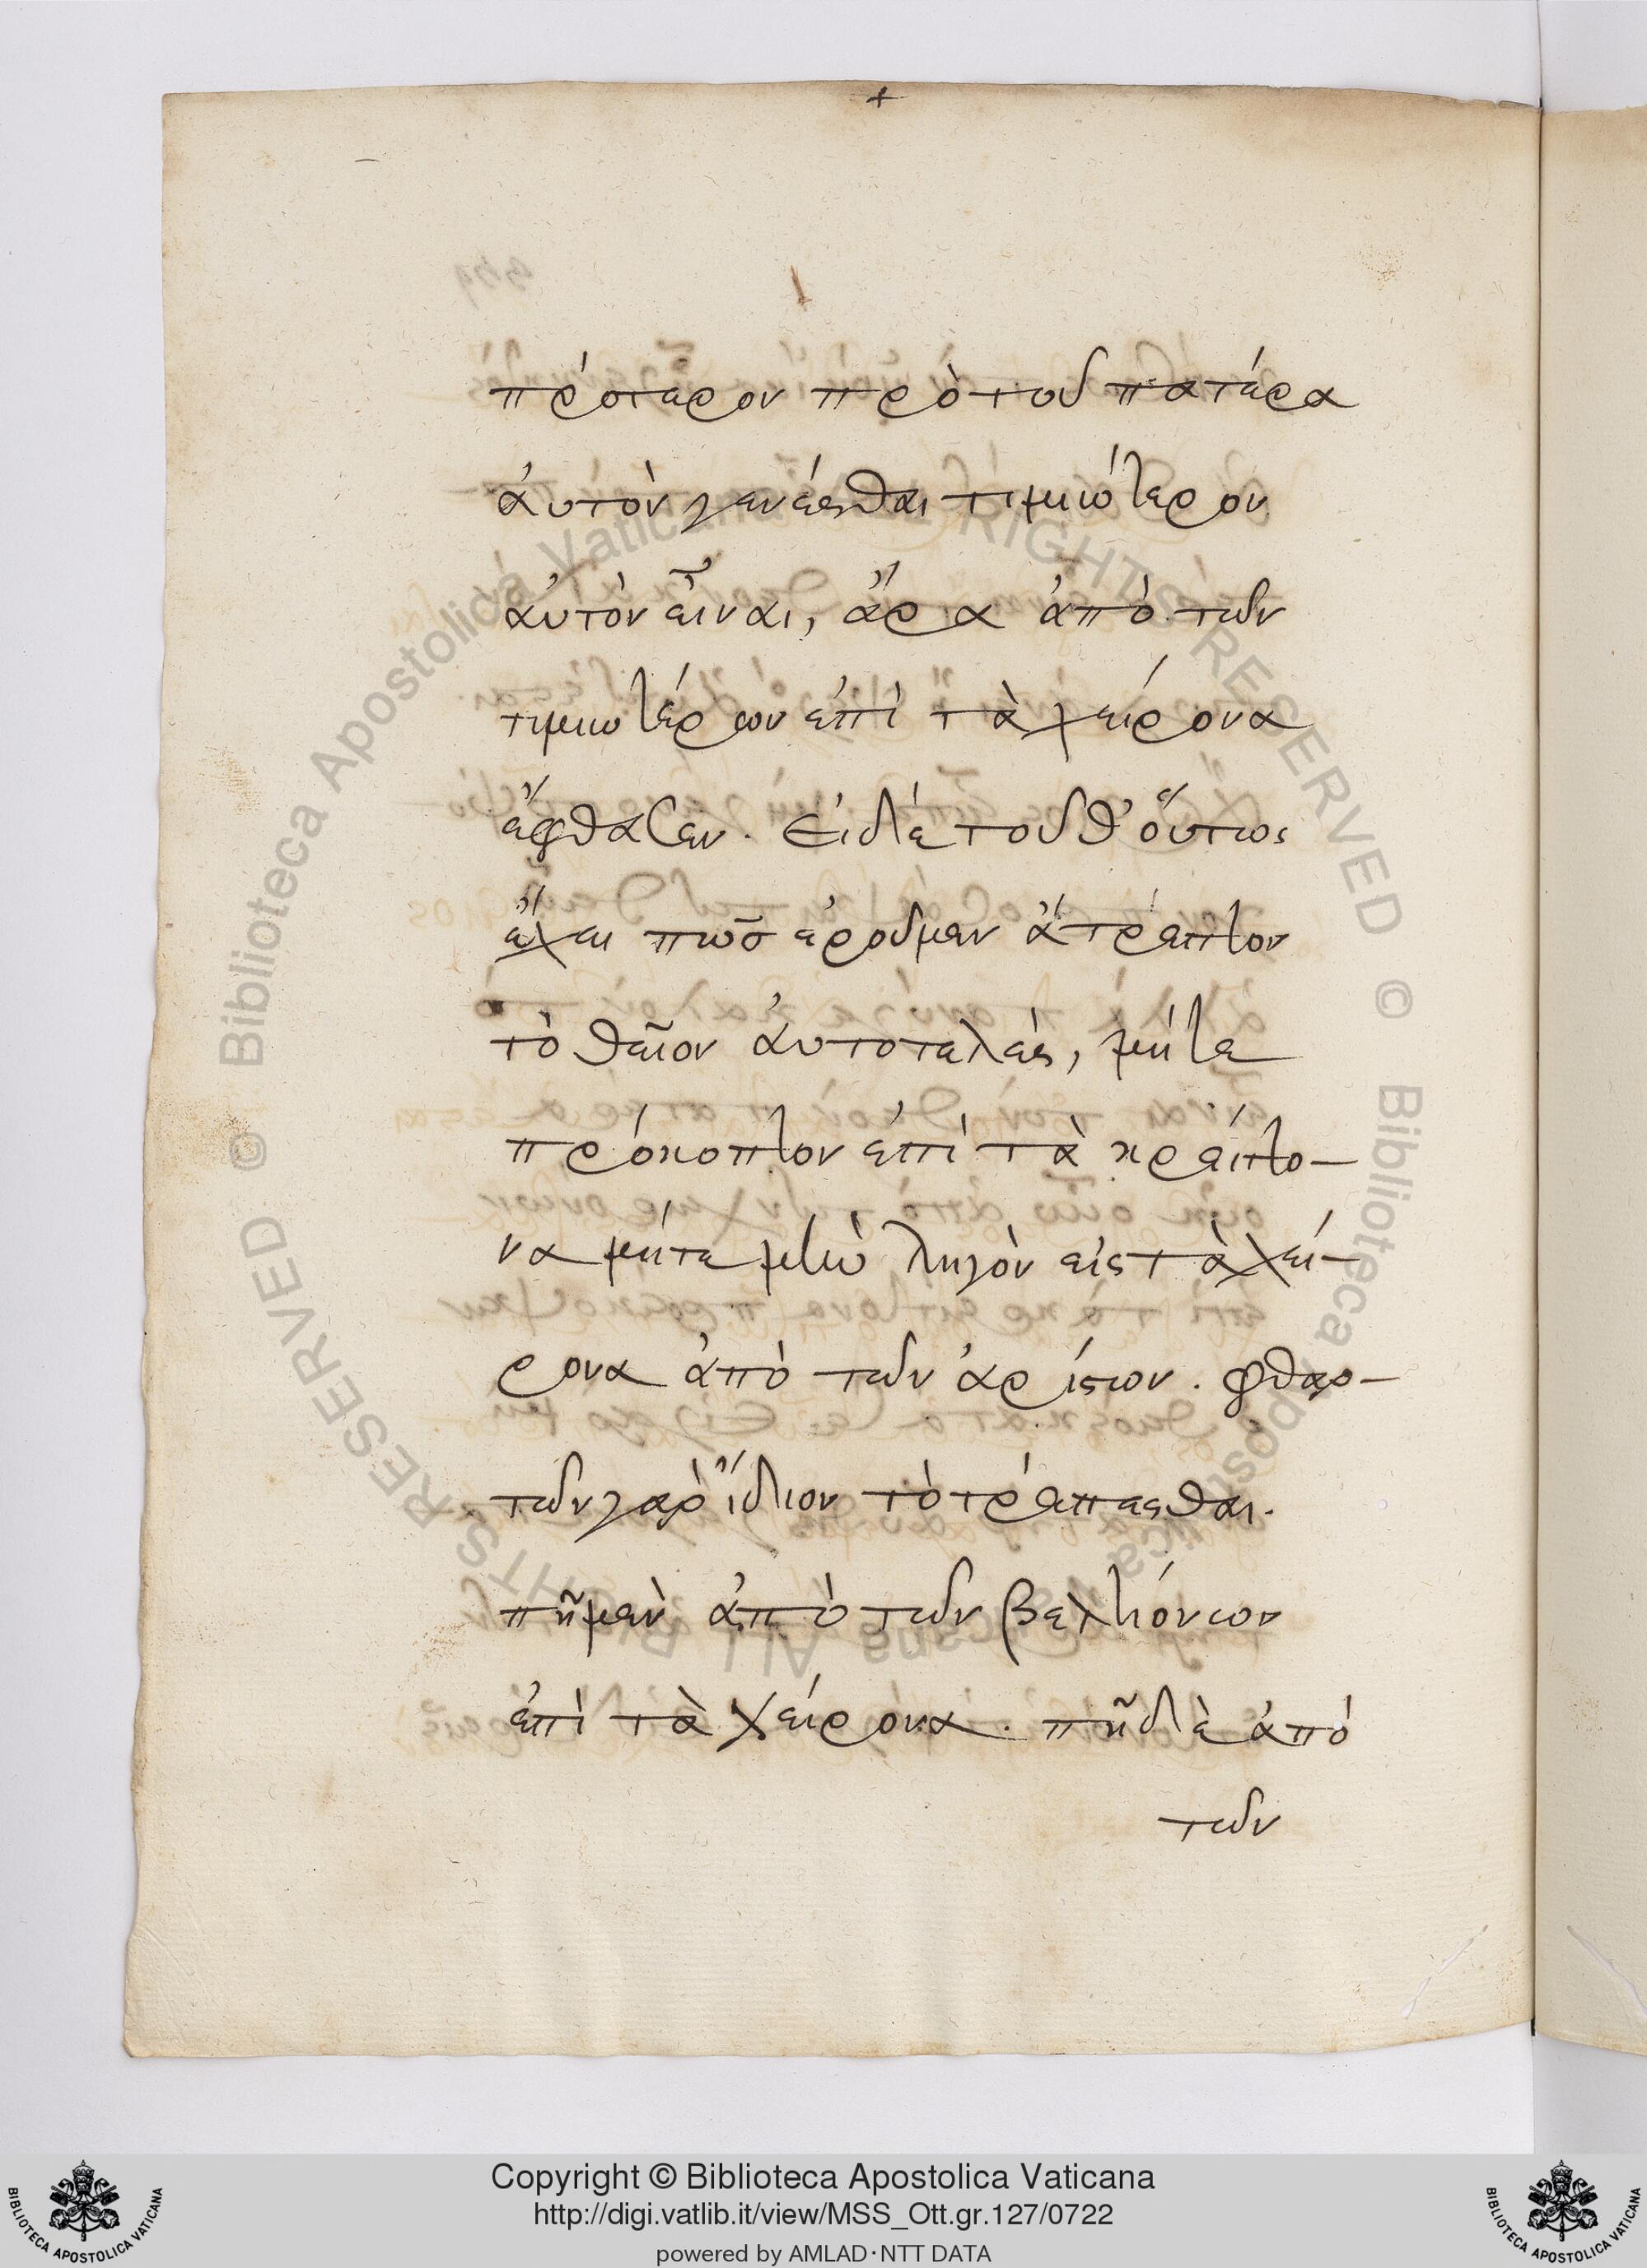 +
πρότερον πρὸ τοῦ πατέρα
ἀυτὸν γενέσθαι τιμιώτερον
ἀυτὸν εἶναι, ἄρα ἀπὸ τῶν
τιμιωτέρων ἐπὶ τὰ χείρονα
ἔφθασεν. Εἰ δὲ τοῦθ' ὅυτως
ἔχει πῶσ ἐροῦμεν ἄτρεπτον
τὸ θεῖον ἀυτοτελὲς, μήτε
πρόκοπτον ἐπὶ τὰ κρείττο-
να μήτε λῆγὸν εἰς τὰ χεί-
ρονα ἀπὸ τῶν ἀρίστων. φθαρ-
τῶν γὰρ ἴδιον τὸ τρέπεσθαι.
πῆ μὲν ἀπὸ τῶν βελτιόνων
ἐπὶ τὰ χείρονα. πῆ δὲ ἀπὸ
τῶν
© Biblioteca Apostolica Vaticana ALL RIGHTS RESERVED
© Biblioteca Apostolica Vaticana ALL RIGHTS RESERVED
Copyright © Biblioteca Apostolica Vaticana
http://digi.vatlib.it/view/MSS_Ott.gr.127/0722
powered by AMLAD·NTT DATA
BIBLIOTECA APOSTOLICA VATICANA
BIBLIOTECA APOSTOLICA VATICANA